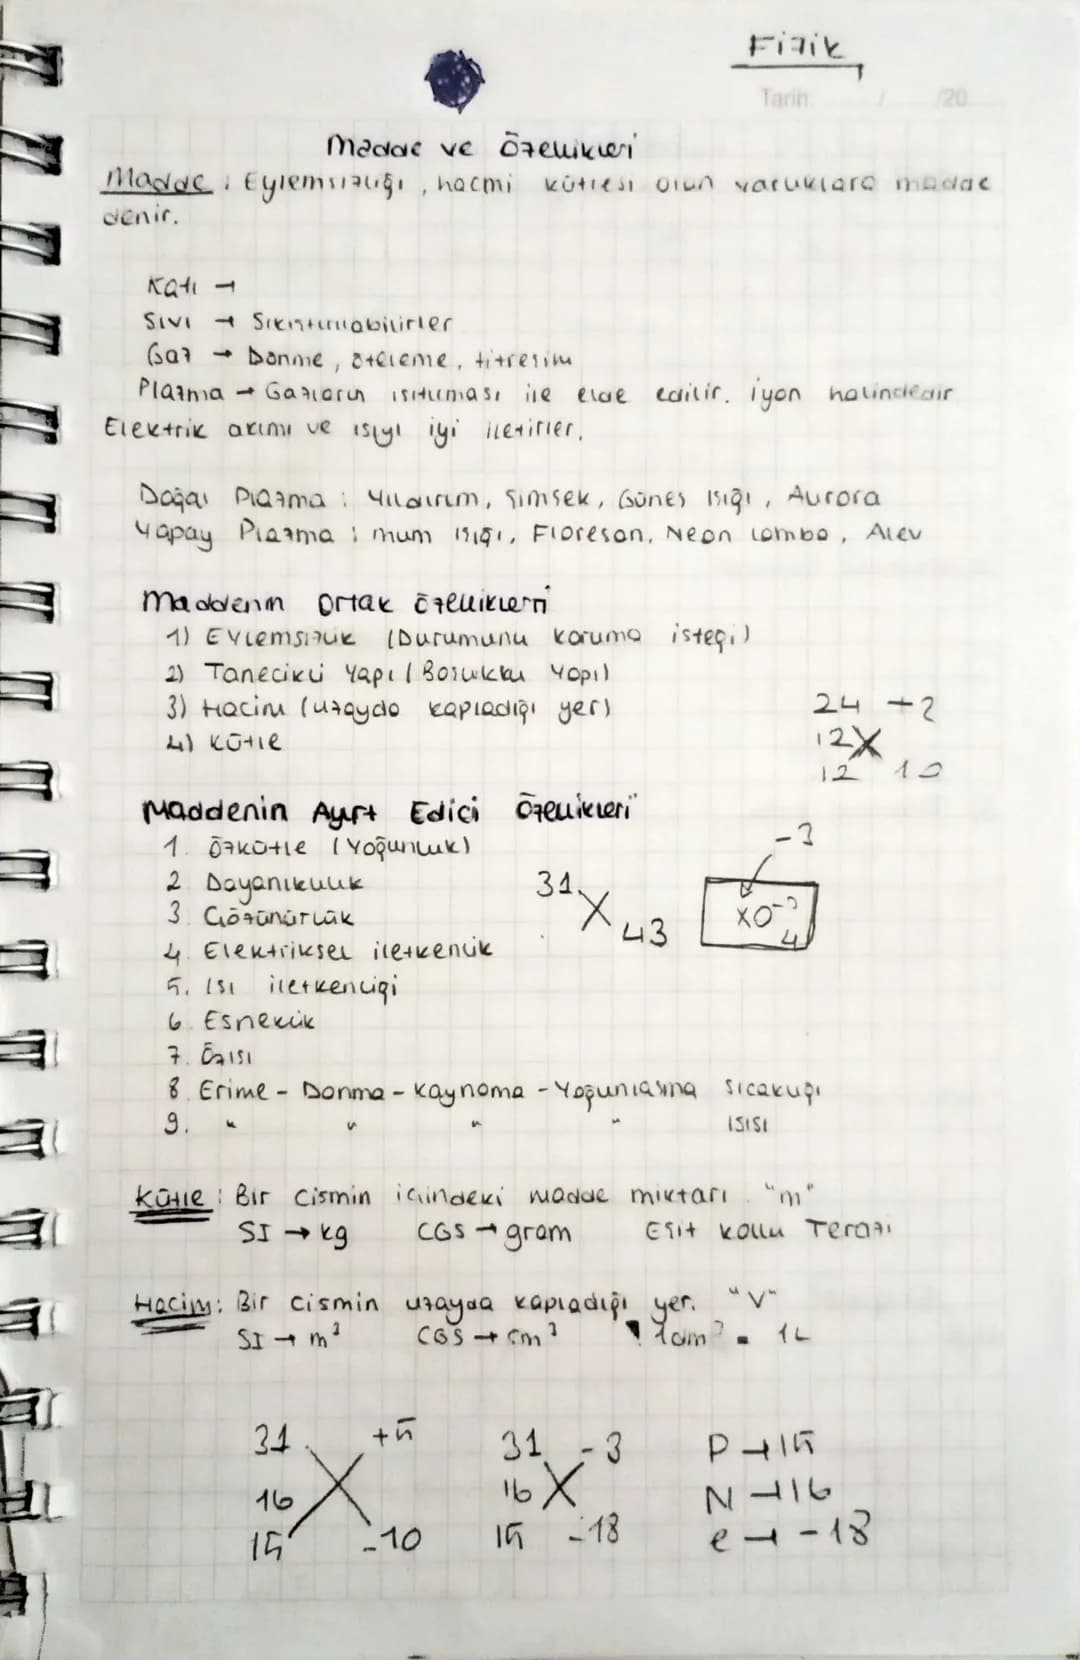 Fizik
Tarih: / /20
Madde ve Özellikleri
Madde : Eylemsizliği, hacmi kütlesi olan varlıklara madde
denir.
Katı →
Sıvı → Sıkıştırılabilirler
Gaz → Dönme, öteleme, titreşim
Plazma → Gazların ısıtılması ile elde edilir. iyon halindedir
Elektrik akımı ve ısıyı iyi iletirler.
Doğal Plazma : Yıldırım, Şimşek, Güneş ışığı, Aurora
Yapay Plazma : mum ışığı, Floresan, Neon lamba, Alev
Maddenin Ortak özellikleri
1) Eylemsizlik (Durumunu koruma isteği)
2) Tanecikli Yapı (Boşluklu Yapı)
3) Hacim (uzayda kapladığı yer)
4) Kütle
24 +2
12 X
12 10
Maddenin Ayırt Edici Özellikleri
1. Özkütle (Yoğunluk)
2. Dayanıklılık
3. Çözünürlük
4. Elektriksel iletkenlik
5. Isı iletkenliği
6. Esneklik
7. Özısı
8. Erime - Donma - Kaynama - Yoğunlaşma sıcaklığı
9. " " " " ısısı
31 X 43
-3
XO-3 4
Kütle : Bir cismin içindeki madde miktarı. "m"
SI → kg CGS → gram Eşit kollu Terazi
Hacim : Bir cismin uzayda kapladığı yer. "V"
SI → m³ CGS → cm³ 1dm³ = 1L
31 +5
16 X
15 -10
31 -3
16 X
15 -18
P → 15
N → 16
e → -18